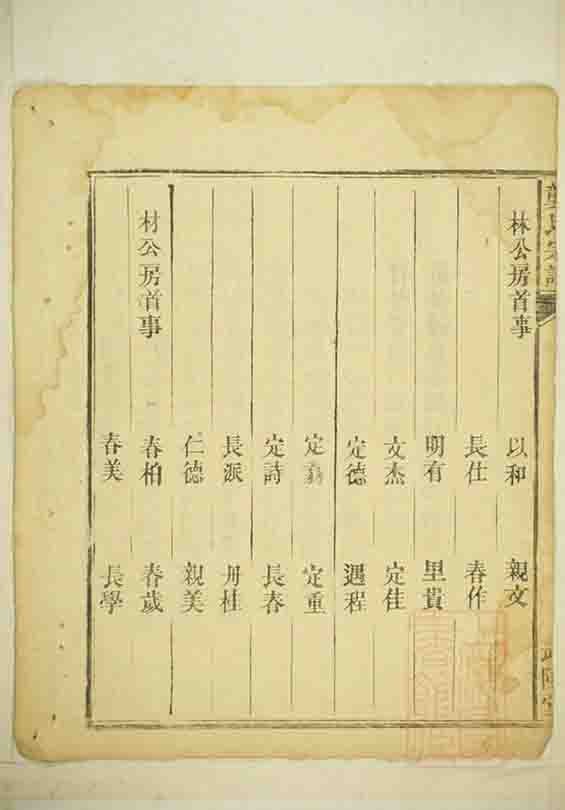 林公房首事
以和 親文
長仕 春作
明有 里貴
文杰 定佳
定德 遇程
定 定重
定詩 長春
長派 丹桂
仁德 親美
材公房首事
春柏 春歲
春美 長學